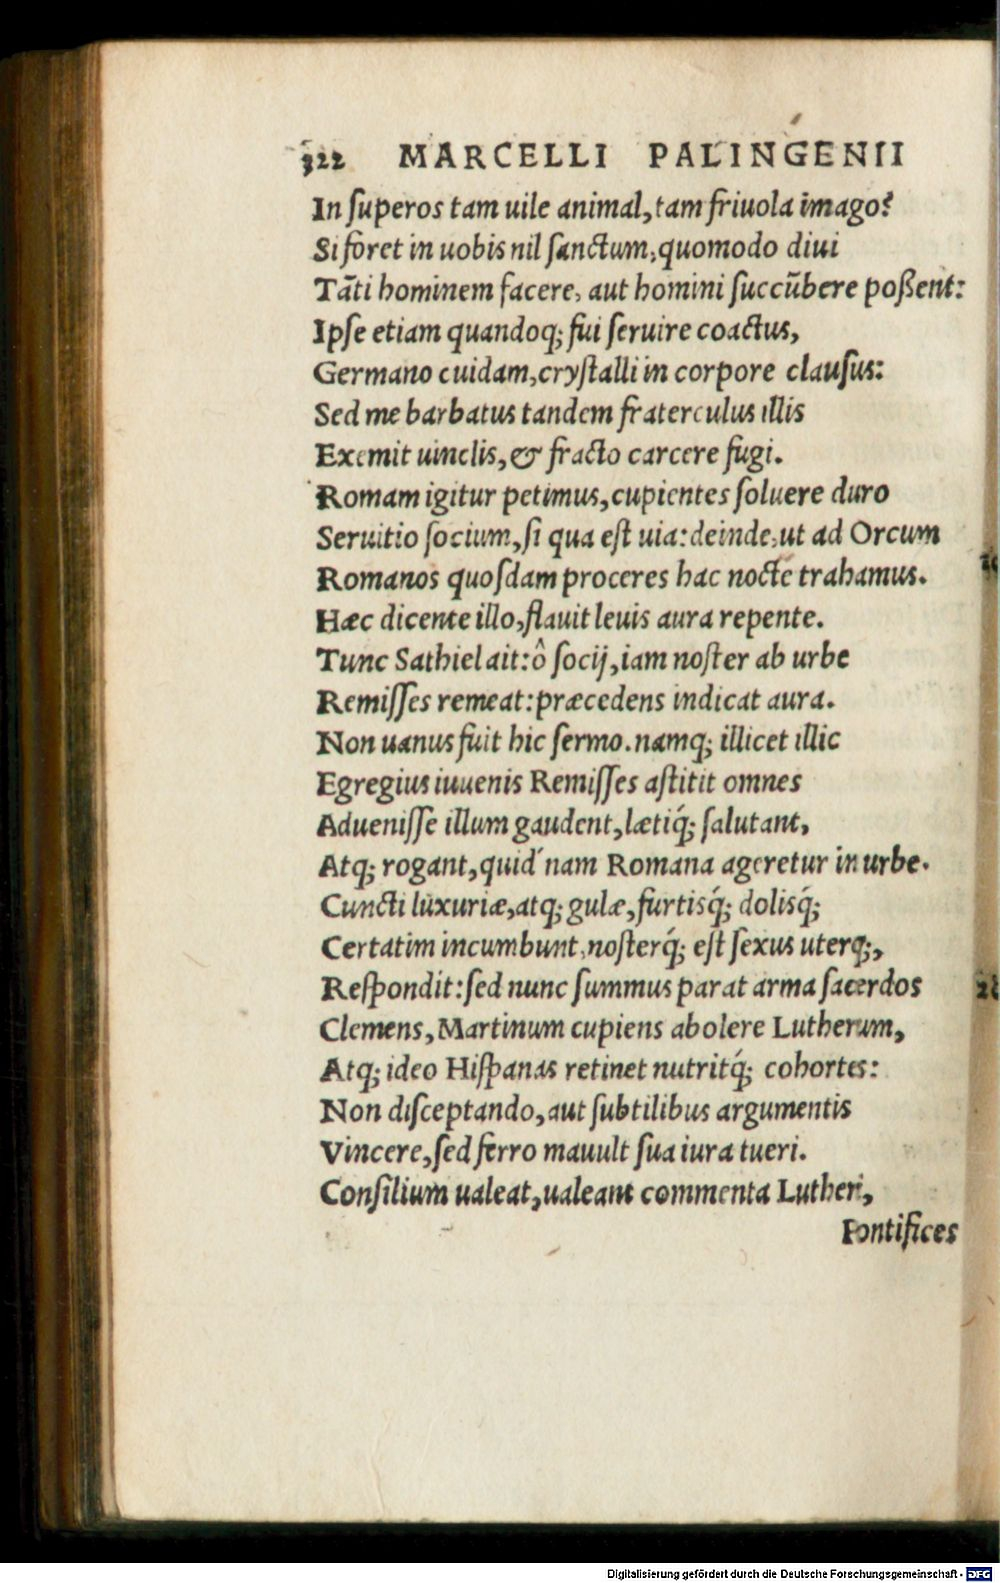 322 MARCELLI PALINGENII
In ſuperos tam uile animal, tam friuola imago?
Si foret in uobis nil ſanctum, quomodo diui
Tāti hominem facere, aut homini ſuccūbere poßent:
Ipſe etiam quandoq; fui ſeruire coactus,
Germano cuidam, cryſtalli in corpore clauſus:
Sed me barbatus tandem fraterculus illis
Exemit uinclis, & fracto carcere fugi.
Romam igitur petimus, cupientes ſoluere duro
Seruitio ſocium, ſi qua eſt uia: deinde, ut ad Orcum
Romanos quoſdam proceres hac nocte trahamus.
Hæc dicente illo, flauit leuis aura repente.
Tunc Sathiel ait: ô ſocij, iam noſter ab urbe
Remiſſes remeat: præcedens indicat aura.
Non uanus fuit hic ſermo. namq; illicet illic
Egregius iuuenis Remiſſes aſtitit omnes
Adueniſſe illum gaudent, lætiq́; ſalutant,
Atq; rogant, quid nam Romana ageretur in urbe.
Cuncti luxuriæ, atq; gulæ, furtisq́; dolisq́;
Certatim incumbunt, noſterq́; eſt ſexus uterq;,
Reſpondit: ſed nunc ſummus parat arma ſacerdos
Clemens, Martinum cupiens abolere Lutherum,
Atq; ideo Hiſpanas retinet nutritq́; cohortes:
Non diſceptando, aut ſubtilibus argumentis
Vincere, ſed ferro mauult ſua iura tueri.
Conſilium ualeat, ualeant commenta Lutheri,
Pontifices
Digitalisierung gefördert durch die Deutsche Forschungsgemeinschaft - DFG